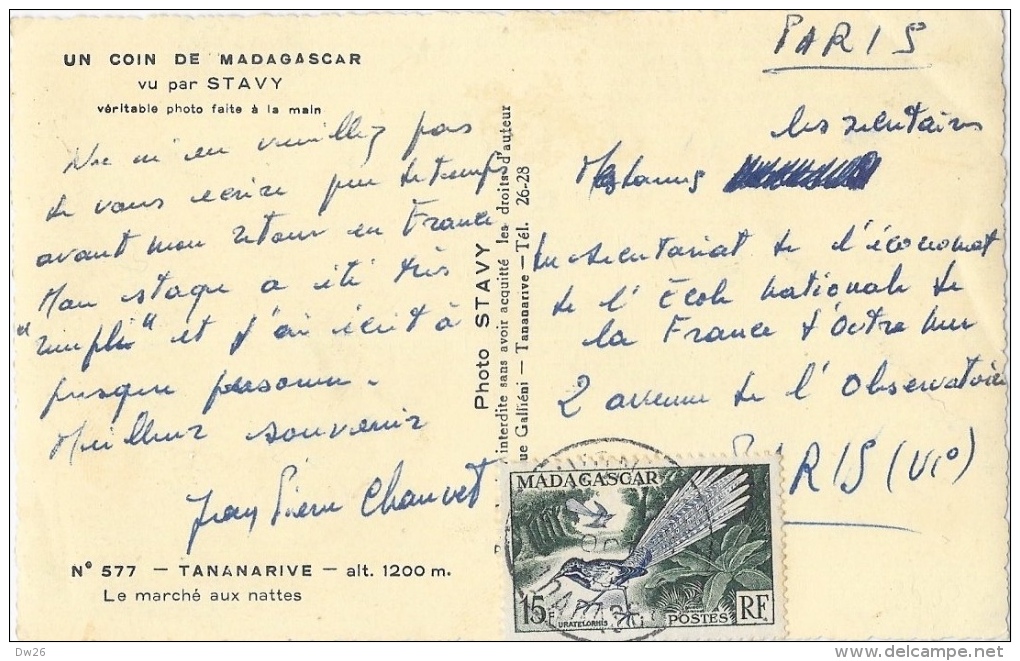 UN COIN DE MADAGASCAR
vu par STAVY
véritable photo faite à la main
Ne m'en veuillez pas
de vous écrire peu de temps
avant mon retour en France
Mon stage a été très
"rempli" et j'ai écrit à
presque personne.
Meilleur souvenir
Jean Pierre Chauvet
N° 577 — TANANARIVE — alt. 1200 m.
Le marché aux nattes
Photo STAVY
interdite sans avoir acquitté les droits d'auteur
ue Galliéni — Tananarive — Tél. 26-28
PARIS
les secrétaires
Mesdames
du secrétariat de l'économat
de l'École Nationale de
la France d'Outre Mer
2 avenue de l'Observatoire
PARIS (VI°)
MADAGASCAR
15F
URATELORNIS
POSTES
RF
Dw26
www.delcampe.net